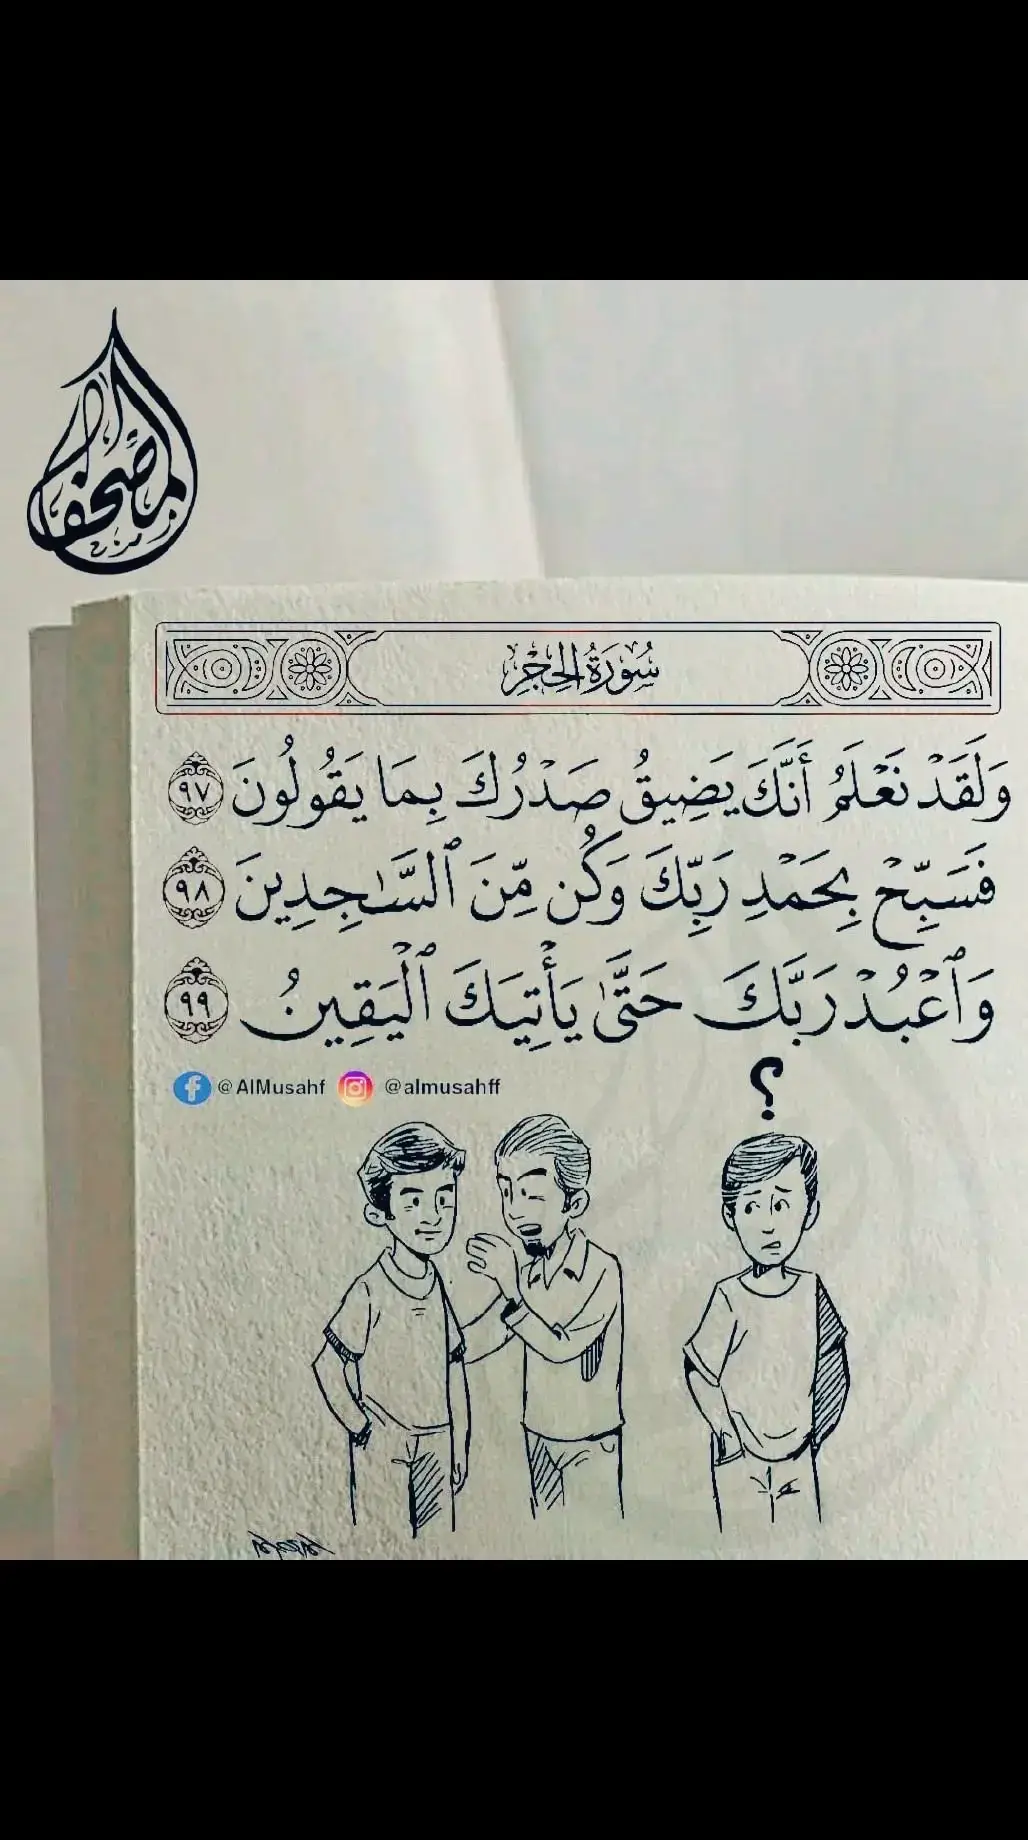 المصحف
سُورَةُ الحِجْرِ
وَلَقَدْ نَعْلَمُ أَنَّكَ يَضِيقُ صَدْرُكَ بِمَا يَقُولُونَ ٩٧
فَسَبِّحْ بِحَمْدِ رَبِّكَ وَكُن مِّنَ ٱلسَّـٰجِدِينَ ٩٨
وَٱعْبُدْ رَبَّكَ حَتَّىٰ يَأْتِيَكَ ٱلْيَقِينُ ٩٩
@AlMusahf @almusahff
؟